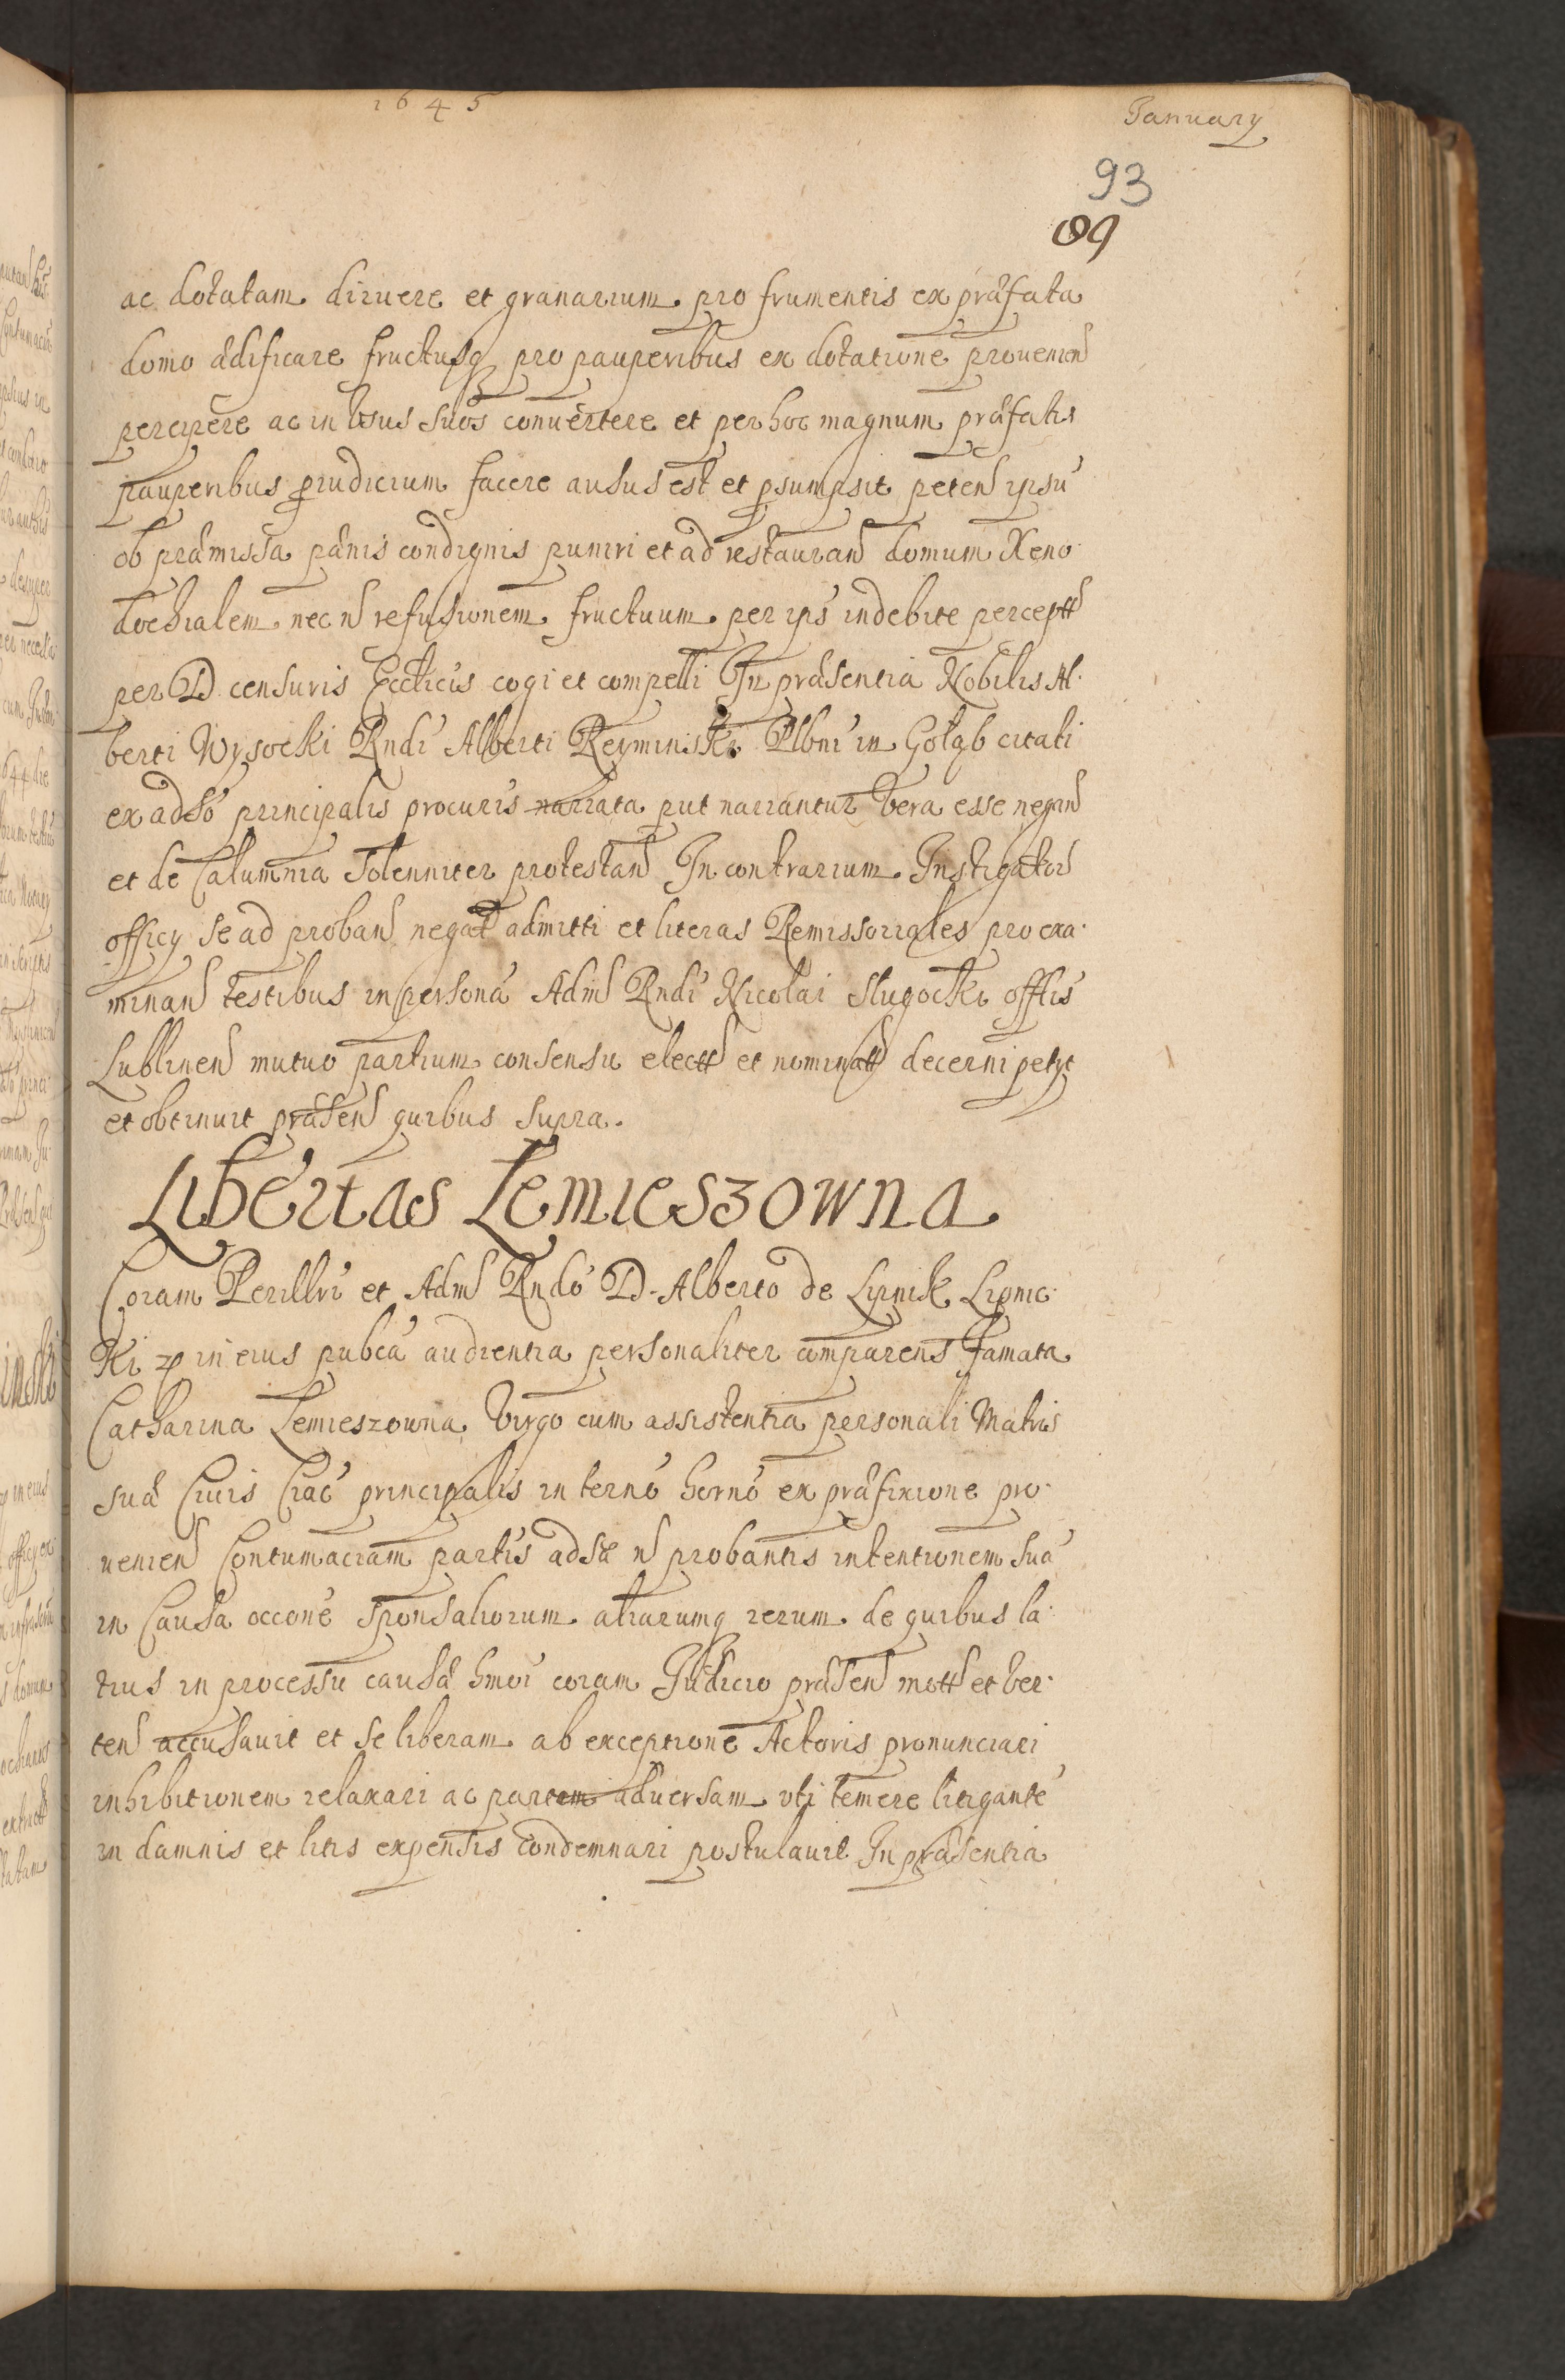 1645
January
93
89
ac dotatam diruere et granarium pro frumentis ex præfata
domo ædificare fructusq pro pauperibus ex dotatione prouenien
percipere ac in vsus suos conuertere et per hoc magnum præfatis
pauperibus piudicium facere ausus est et psumpsit peten ipsu
ob præmissa pænis condignis puniri et ad restauran domum Xeno
dochialem nec n refusionem fructuum per ips indebite percept
per D censuris Eccticis cogi et compelli In præsentia Nobilis Al
berti Wysocki Rndi Alberti Reyminski Plbni in Gołąb citati
ex adso principalis procuris narrata put narrantur vera esse negan
et de Calumnia Solenniter protestan In contrarium Instigator
officy se ad proban negat admitti et literas Remissoriales pro exa
minan testibus in persona Adm Rndi Nicolai Slugocki offlis
Lublinen mutuo partium consensu elect et nominatt decerni petyt
et obtinuit præsen quibus supra.
Libertas Lemieszowna
Coram Perillri et Adm Rndo D. Alberto de Lipnik Lipnic
ki in eius pubca audientia personaliter comparens famata
Catharina Lemieszowna Virgo cum assistentia personali Matris
suæ Ciuis Crac principalis in terno horno ex præfixione pro
uenien Contumaciam partis adsæ n probantis intentionem sua
in Causa occone Sponsaliorum aliarumq rerum de quibus la
tius in processu causæ hmoi coram Judicio præsen mott et ver
ten accusauit et se liberam ab exceptione Actoris pronunciari
inhibitionem relaxari ac partem aduersam vti temere litigante
in damnis et litis expensis condemnari postulauit In præsentia